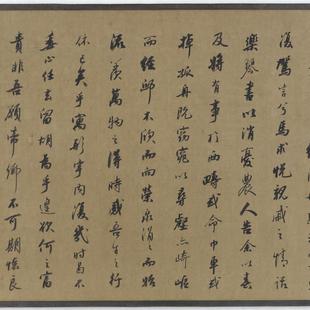 復駕言兮焉求悅親戚之情話
樂琴書以消憂農人告余以春
及將有事於西疇或命巾車或
棹孤舟既窈窕以尋壑亦崎嶇
而經邱木欣欣而向榮泉涓涓而始
流羨萬物之得時感吾生之行
休已矣乎寓形宇內復幾時曷不
委心任去留胡為乎遑欲何之富
貴非吾願帝鄉不可期懷良